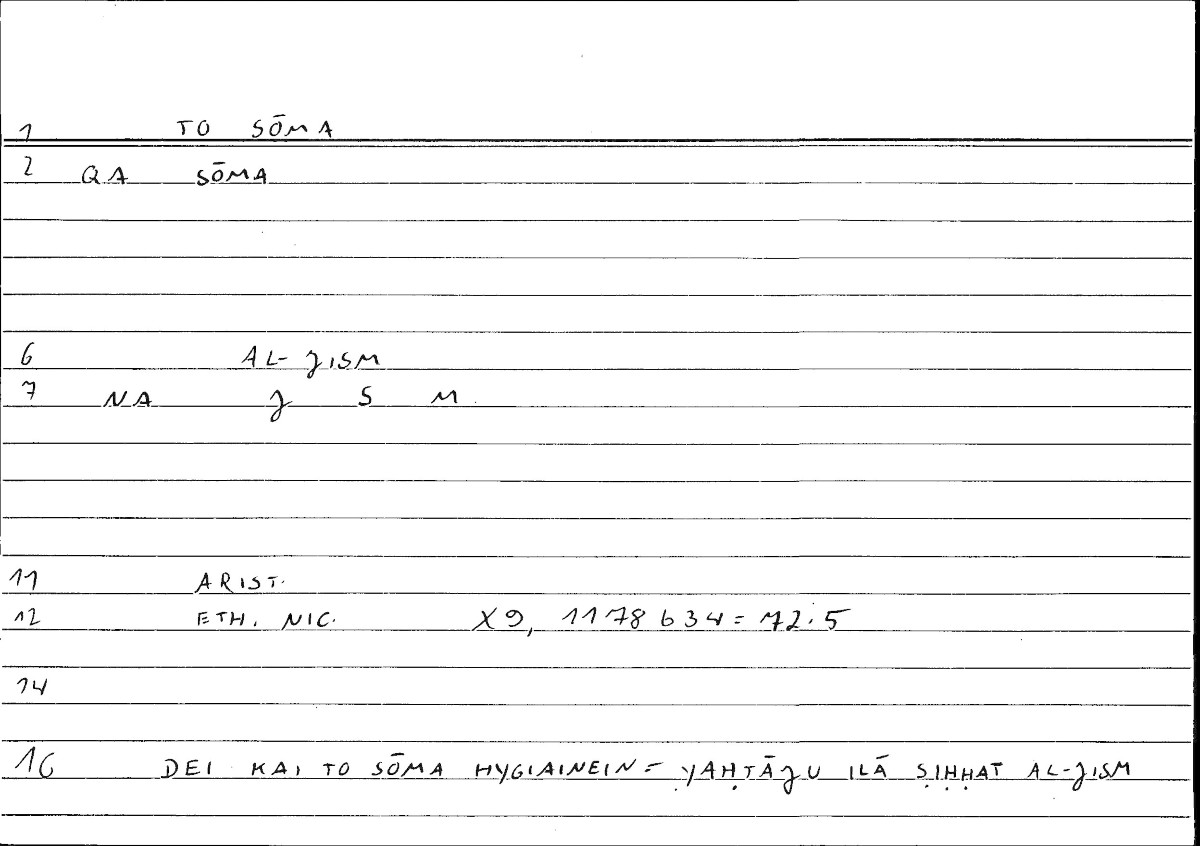 1 TO SŌMA
2 QA SŌMA
6 AL-JISM
7 NA J S M
11 ARIST.
12 ETH. NIC. X9, 1178b34 = 72.5
14
16 DEI KAI TO SŌMA HYGIAINEIN = YAḤTĀJU ILĀ ṢIḤḤAT AL-JISM